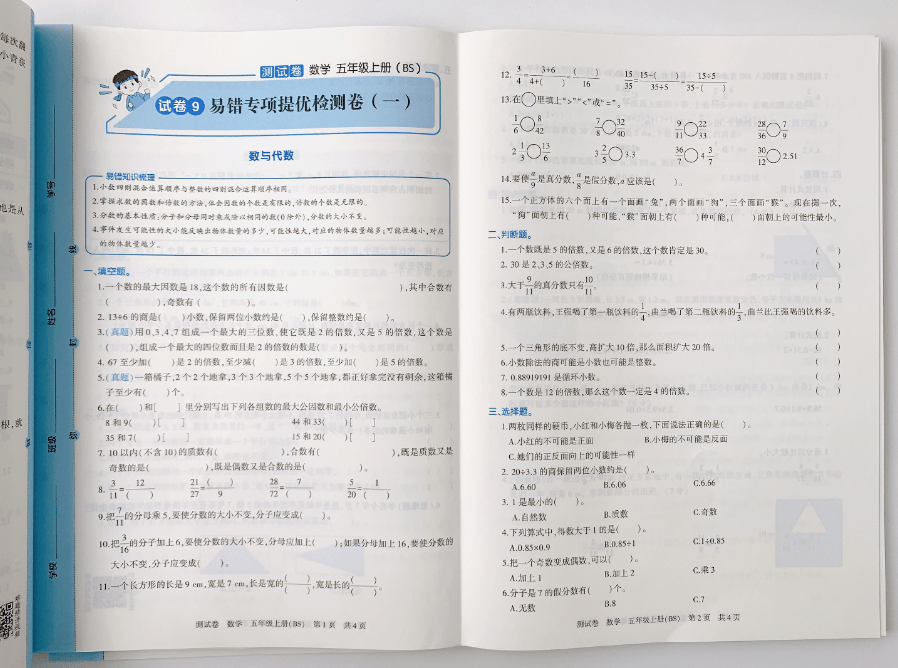 每次蘸
根,或
学号
姓名
班级
学校
线
订
装
测试卷 数学 五年级上册(BS)
试卷9 易错专项提优检测卷(一)
数与代数
易错知识梳理
1.小数四则混合运算顺序与整数的四则混合运算顺序相同。
2.掌握求数的因数和倍数的方法,体会因数的个数是有限的,倍数的个数是无限的。
3.分数的基本性质:分子和分母同时乘或除以相同的数(0除外),分数的大小不变。
4.事件发生可能性的大小能反映出物体数量的多少,可能性越大,对应的物体数量越多;可能性越小,对应
的物体数量越少。
一、填空题。
1.一个数的最大因数是18,这个数的所有因数是( ),其中合数有
( ),奇数有( )。
2. 13÷6的商是( )小数,保留两位小数约是( ),保留整数约是( )。
3.(真题)用0,3,4,7组成一个最大的三位数,使它既是2的倍数,又是5的倍数,这个数是
( ),组成一个最大的四位数而且是2的倍数的数是( )。
4. 67至少加( )是2的倍数,至少减( )是3的倍数,至少加( )是5的倍数。
5.(真题)一箱橘子,2个2个地拿,3个3个地拿,5个5个地拿,都正好拿完没有剩余,这箱橘
子至少有( )个。
6.在( )和[ ]里分别写出下列各组数的最大公因数和最小公倍数。
8和9( )[ ] 44和33( )[ ]
35和7( )[ ] 15和20( )[ ]
7. 10以内(不含10)的质数有( ),合数有( ),既是质数又是
奇数的是( ),既是偶数又是合数的是( )。
8. 3/11=12/( ) 21/27=( )/9 28/72=7/( ) 5/20=( )/( )
9.把7/11的分母乘5,要使分数的大小不变,分子应变成( )。
10.把3/16的分子加上6,要使分数的大小不变,分母应加上( );如果分母加上16,要使分数的
大小不变,分子应变成( )。
11.一个长方形的长是9 cm,宽是7 cm,长是宽的( )/( ),宽是长的( )/( )。
测试卷 数学 五年级上册(BS) 第1页 共4页
12. 3/4=3+6/4+( )=( )/16 15/35=15-( )/35÷5=15÷5/35-( )
13.在○里填上“>”“<”或“=”。
1/6○8/42 7/8○32/40 9/11○22/33 28/36○7/9
2 1/3○13/6 3 2/5○3.3 36/7○4 3/7 30/12○2.51
14.要使a/9是真分数,a/8是假分数,a应该是( )。
15.一个正方体的六个面上有一个面画“兔”,两个面画“狗”,三个面画“猴”。现在掷一次,
“狗”面朝上有( )种可能,“猴”面朝上有( )种可能,( )面朝上的可能性最小。
二、判断题。
1.一个数既是5的倍数,又是6的倍数,这个数肯定是30。 ( )
2. 30是2,3,5的公倍数。 ( )
3.大于9/11的真分数只有10/11。 ( )
4.有两瓶饮料,王强喝了第一瓶饮料的1/4,曲兰喝了第二瓶饮料的1/3,曲兰比王强喝的饮料多。
( )
5.一个三角形的底不变,高扩大10倍,那么面积扩大20倍。 ( )
6.小数除法的商可能是小数也可能是整数。 ( )
7. 0.88919191是循环小数。 ( )
8.一个数是12的倍数,那么这个数一定是4的倍数。 ( )
三、选择题。
1.两枚同样的硬币,小红和小梅各抛一枚,下面说法正确的是( )。
A.小红的不可能是正面 B.小梅的不可能是反面
C.她们的正反面向上的可能性一样
2. 20÷3.3的商保留两位小数约是( )。
A.6.60 B.6.06 C.6.66
3. 1是最小的( )。
A.自然数 B.质数 C.奇数
4.下列算式中,得数大于1的是( )。
A.0.85×0.9 B.0.85÷1 C.1÷0.85
5.把一个奇数变成偶数,可以( )。
A.加上1 B.加上2 C.乘3
6.分子是7的假分数有( )个。
A.无数 B.8 C.7
测试卷 数学 五年级上册(BS) 第2页 共4页